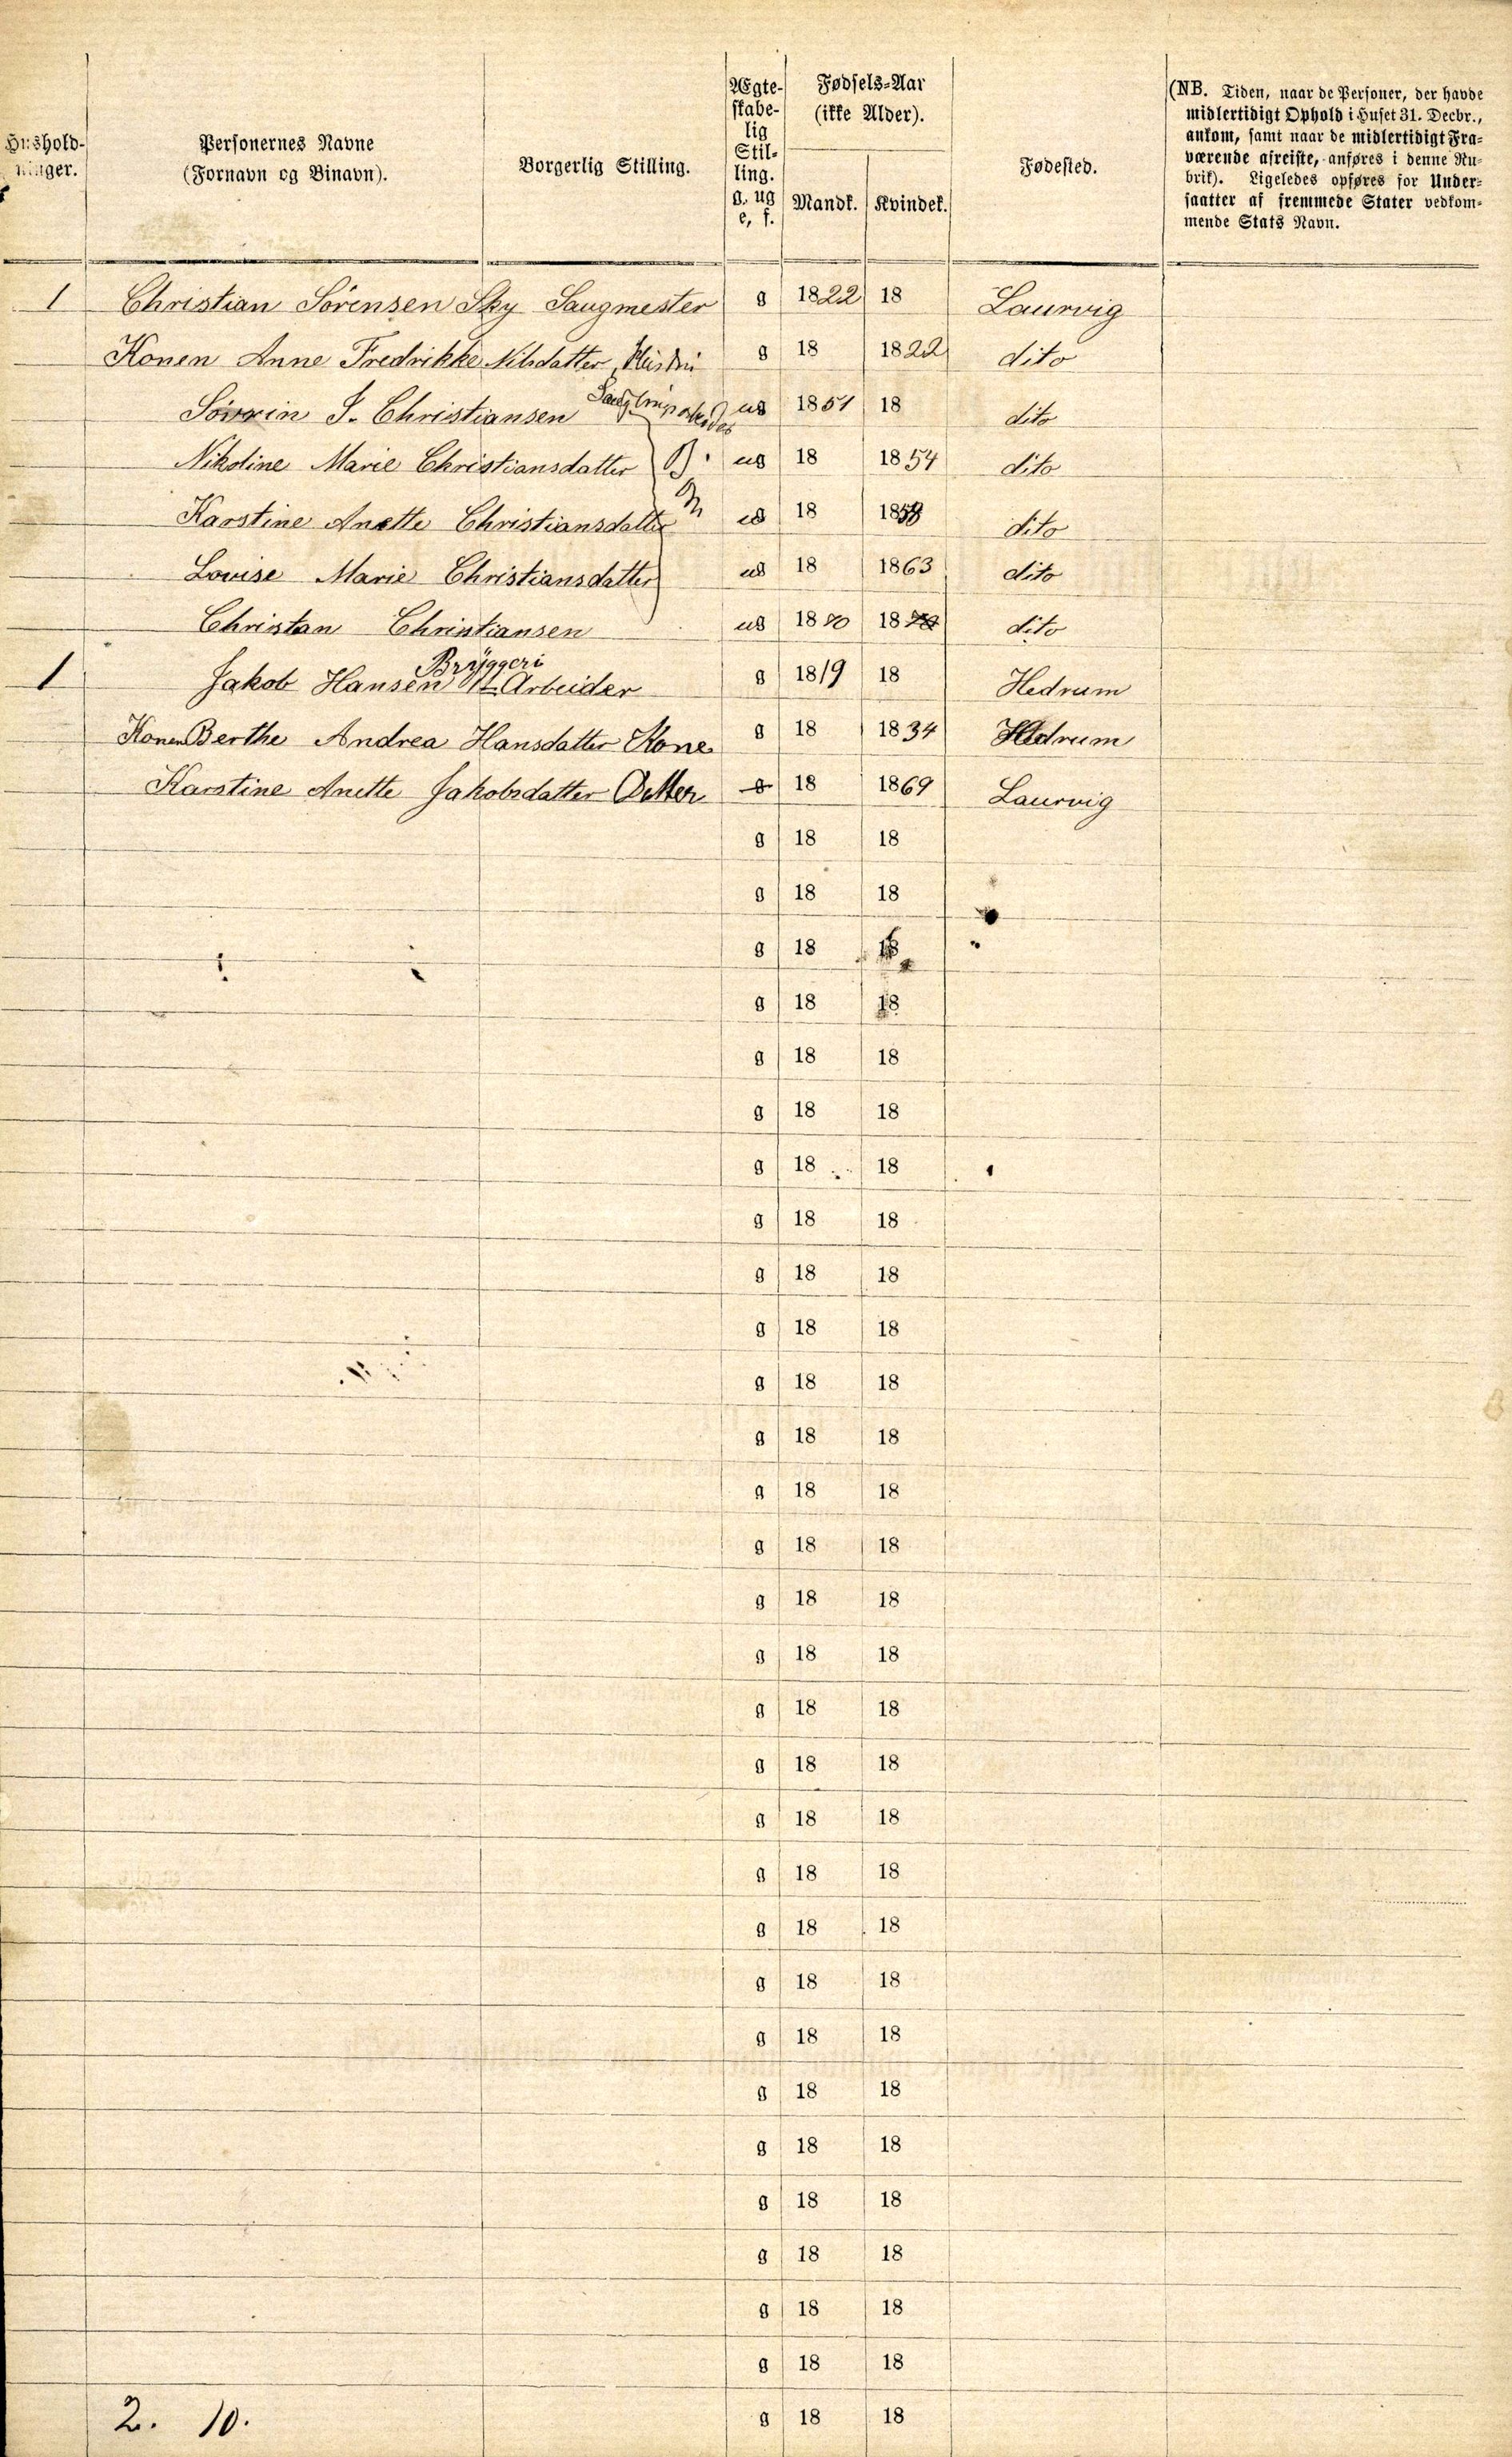 Hushold-
ninger.
Personernes Navne
(Fornavn og Binavn).
Borgerlig Stilling.
Ægte-
skabe-
lig
Stil-
ling.
g. ug
e, f.
Fødsels-Aar
(ikke Alder).
Mandk. Kvindek.
Fødested.
(NB. Tiden, naar de Personer, der havde
midlertidigt Ophold i Huset 31. Decbr.,
ankom, samt naar de midlertidigt Fra-
værende afreiste, anføres i denne Ru-
brik). Ligeledes opføres for Under-
saatter af fremmede Stater vedkom-
mende Stats Navn.
1 Christian Sörensen Sky Saugmester g 1822 18 Laurvig
Konen Anne Fredrikke Nilsdatter, Hustru g 18 1822 dito
Sövrin S. Christiansen ug 1851 18 dito
Nikoline Marie Christiansdatter B. ug 18 1854 dito
Karstine Anette Christiansdatter ug 18 1858 dito
Lovise Marie Christiansdatter ug 18 1863 dito
Christan Christiansen ug 1870 18 dito
Bryggeri
1 Jakob Hansen Arbeider g 1819 18 Hedrum
Konen Berthe Andrea Hansdatter Kone g 18 1834 Hedrum
Karstine Anette Jakobsdatter Datter g 18 1869 Laurvig
g 18 18
g 18 18
g 18 18
g 18 18
g 18 18
g 18 18
g 18 18
g 18 18
g 18 18
g 18 18
g 18 18
g 18 18
g 18 18
g 18 18
g 18 18
g 18 18
g 18 18
g 18 18
g 18 18
g 18 18
g 18 18
g 18 18
g 18 18
g 18 18
g 18 18
g 18 18
g 18 18
g 18 18
g 18 18
2. 10. g 18 18